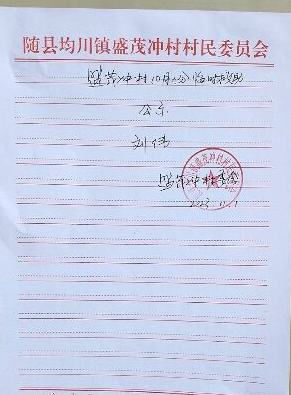 随县均川镇盛茂冲村村民委员会
盛茂冲村10月份临时救助
公示
刘伟
盛茂冲村委会
2023.11.1